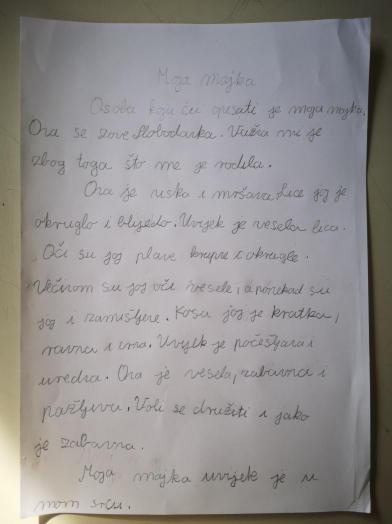 Moja majka
Osoba koju ću opisati je moja majka.
Ona se zove Slobodanka. Važna mi je
zbog toga što me je rodila.
Ona je niska i mršava. Lice joj je
okruglo i blijedo. Uvijek je vesela lica.
Oči su joj plave krupne i okrugle.
Većinom su joj oči vesele, a ponekad su
joj i zamišljene. Kosa joj je kratka,
ravna i crna. Uvijek je počešljana i
uredna. Ona je vesela, zabavna i
pažljiva. Voli se družiti i jako
je zabavna.
Moja majka uvijek je u
mom srcu.